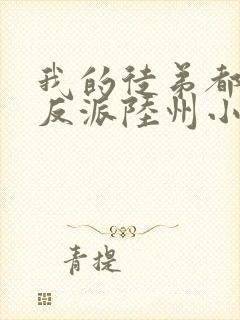 我的徒弟都
反派陆州小
青提